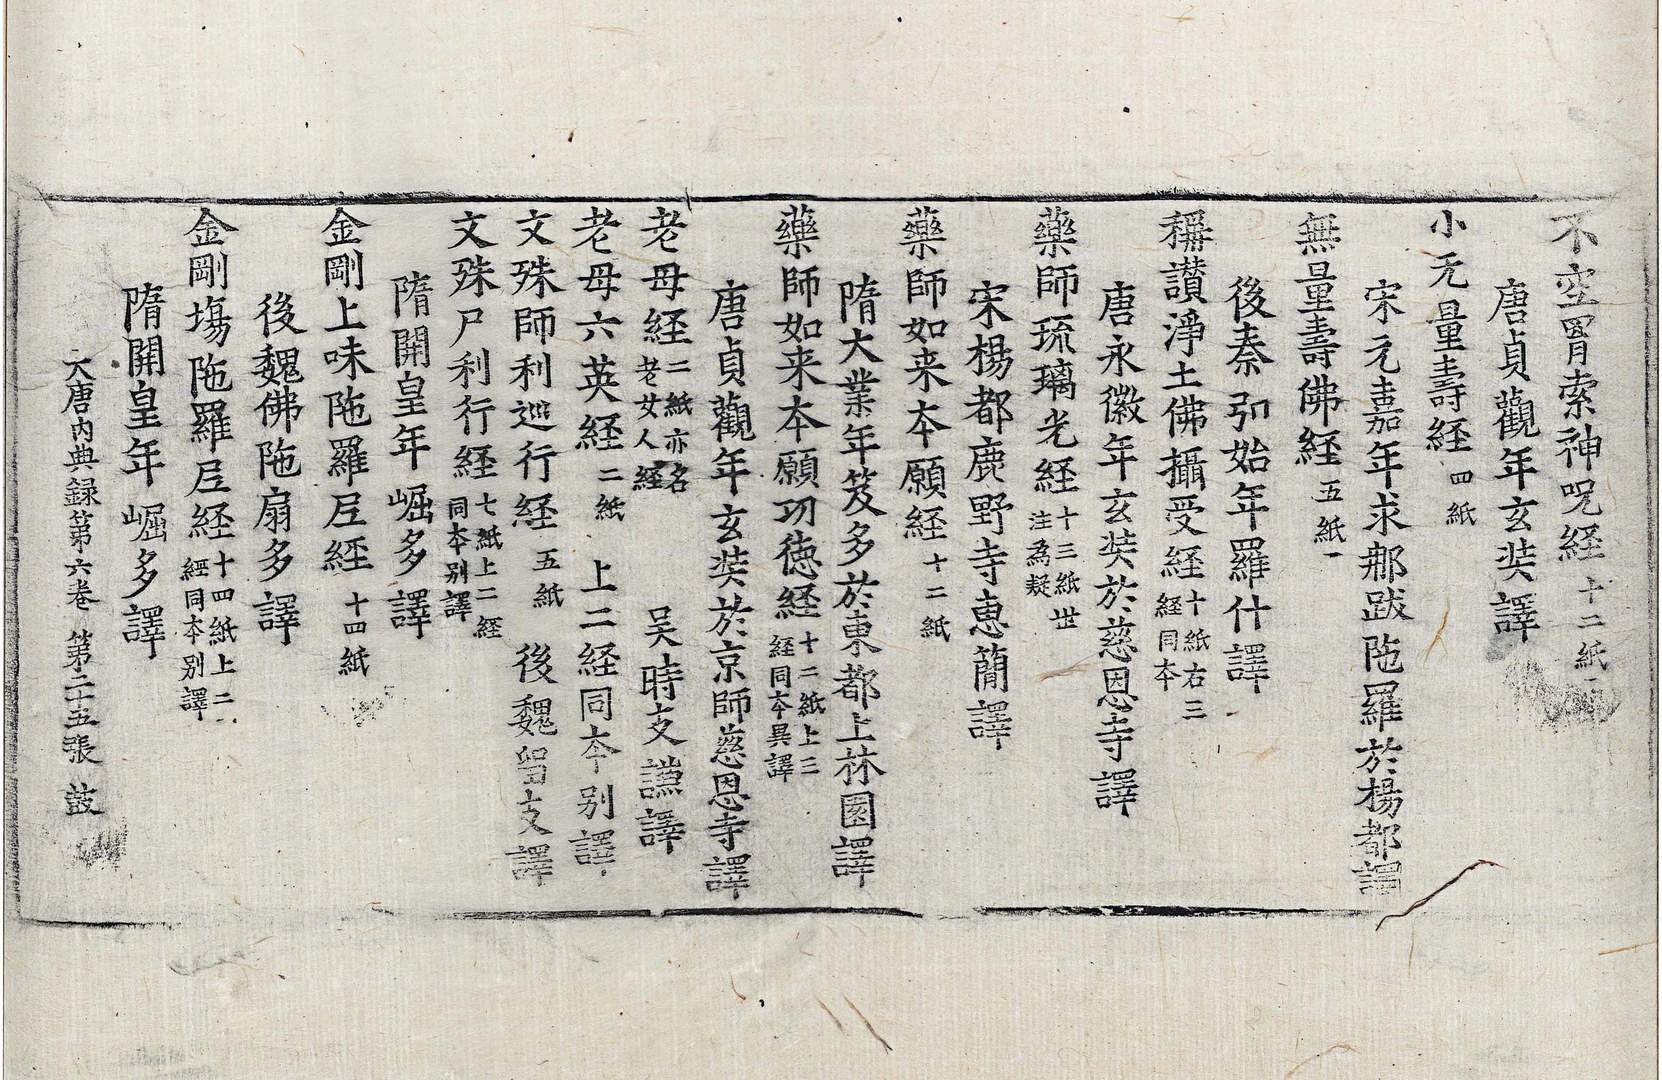 不空罥索神呪経十二紙
唐貞觀年玄奘譯
小无量壽経四紙
宋元嘉年求那跋陁羅於楊都譯
無量壽佛経五紙
後秦弘始年羅什譯
稱讃淨土佛攝受経十紙右三経同本
唐永徽年玄奘於慈恩寺譯
藥師琉璃光経十三紙世注為疑
宋楊都鹿野寺惠簡譯
藥師如来本願経十二紙
隋大業年笈多於東都上林園譯
藥師如来本願功徳経十二紙上三経同本異譯
唐貞觀年玄奘於京師慈恩寺譯
老母経二紙亦名老女人経 吴時支謙譯
老母六英経二紙 上二経同本别譯
文殊師利巡行経五紙 後魏留支譯
文殊尸利行経七紙上二経同本别譯
隋開皇年崛多譯
金剛上味陁羅尼経十四紙
後魏佛陁扇多譯
金剛場陁羅尼経十四紙上二経同本别譯
隋開皇年崛多譯
大唐内典録第六卷 第二十五張 鼓